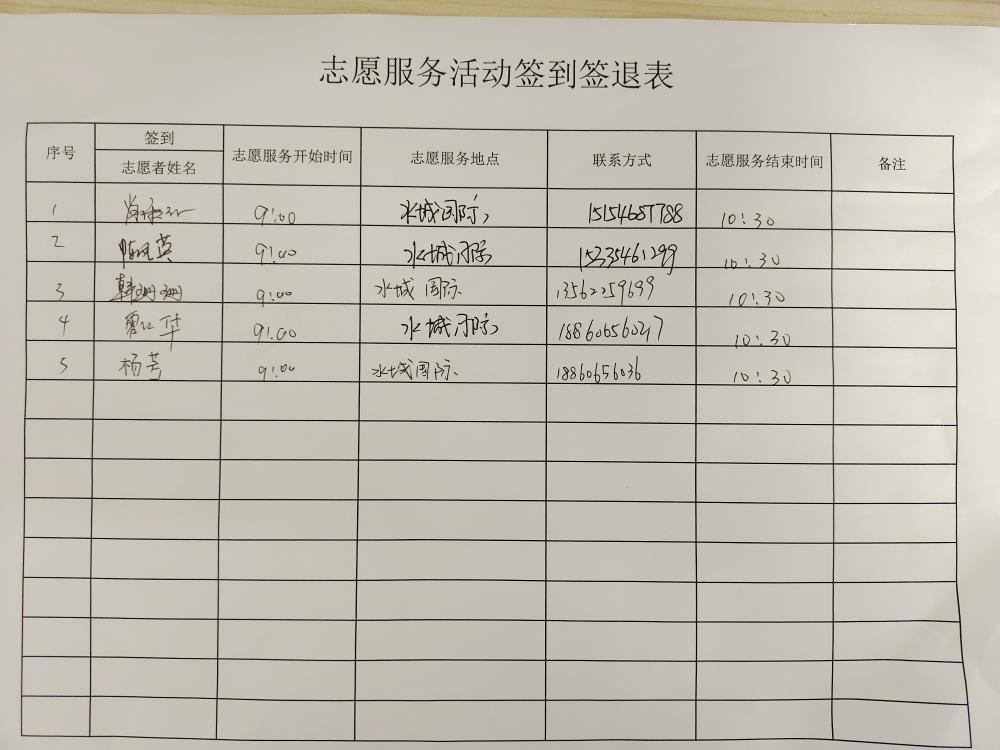 志愿服务活动签到签退表
序号 签到 志愿者姓名 志愿服务开始时间 志愿服务地点 联系方式 志愿服务结束时间 备注
1 9:00 水城国际 15154687788 10:30
2 陈凤英 9:00 水城国际 15235461299 10:30
3 韩珊珊 9:00 水城国际 13562259699 10:30
4 贾红华 9:00 水城国际 18860656027 10:30
5 杨芳 9:00 水城国际 18860656036 10:30